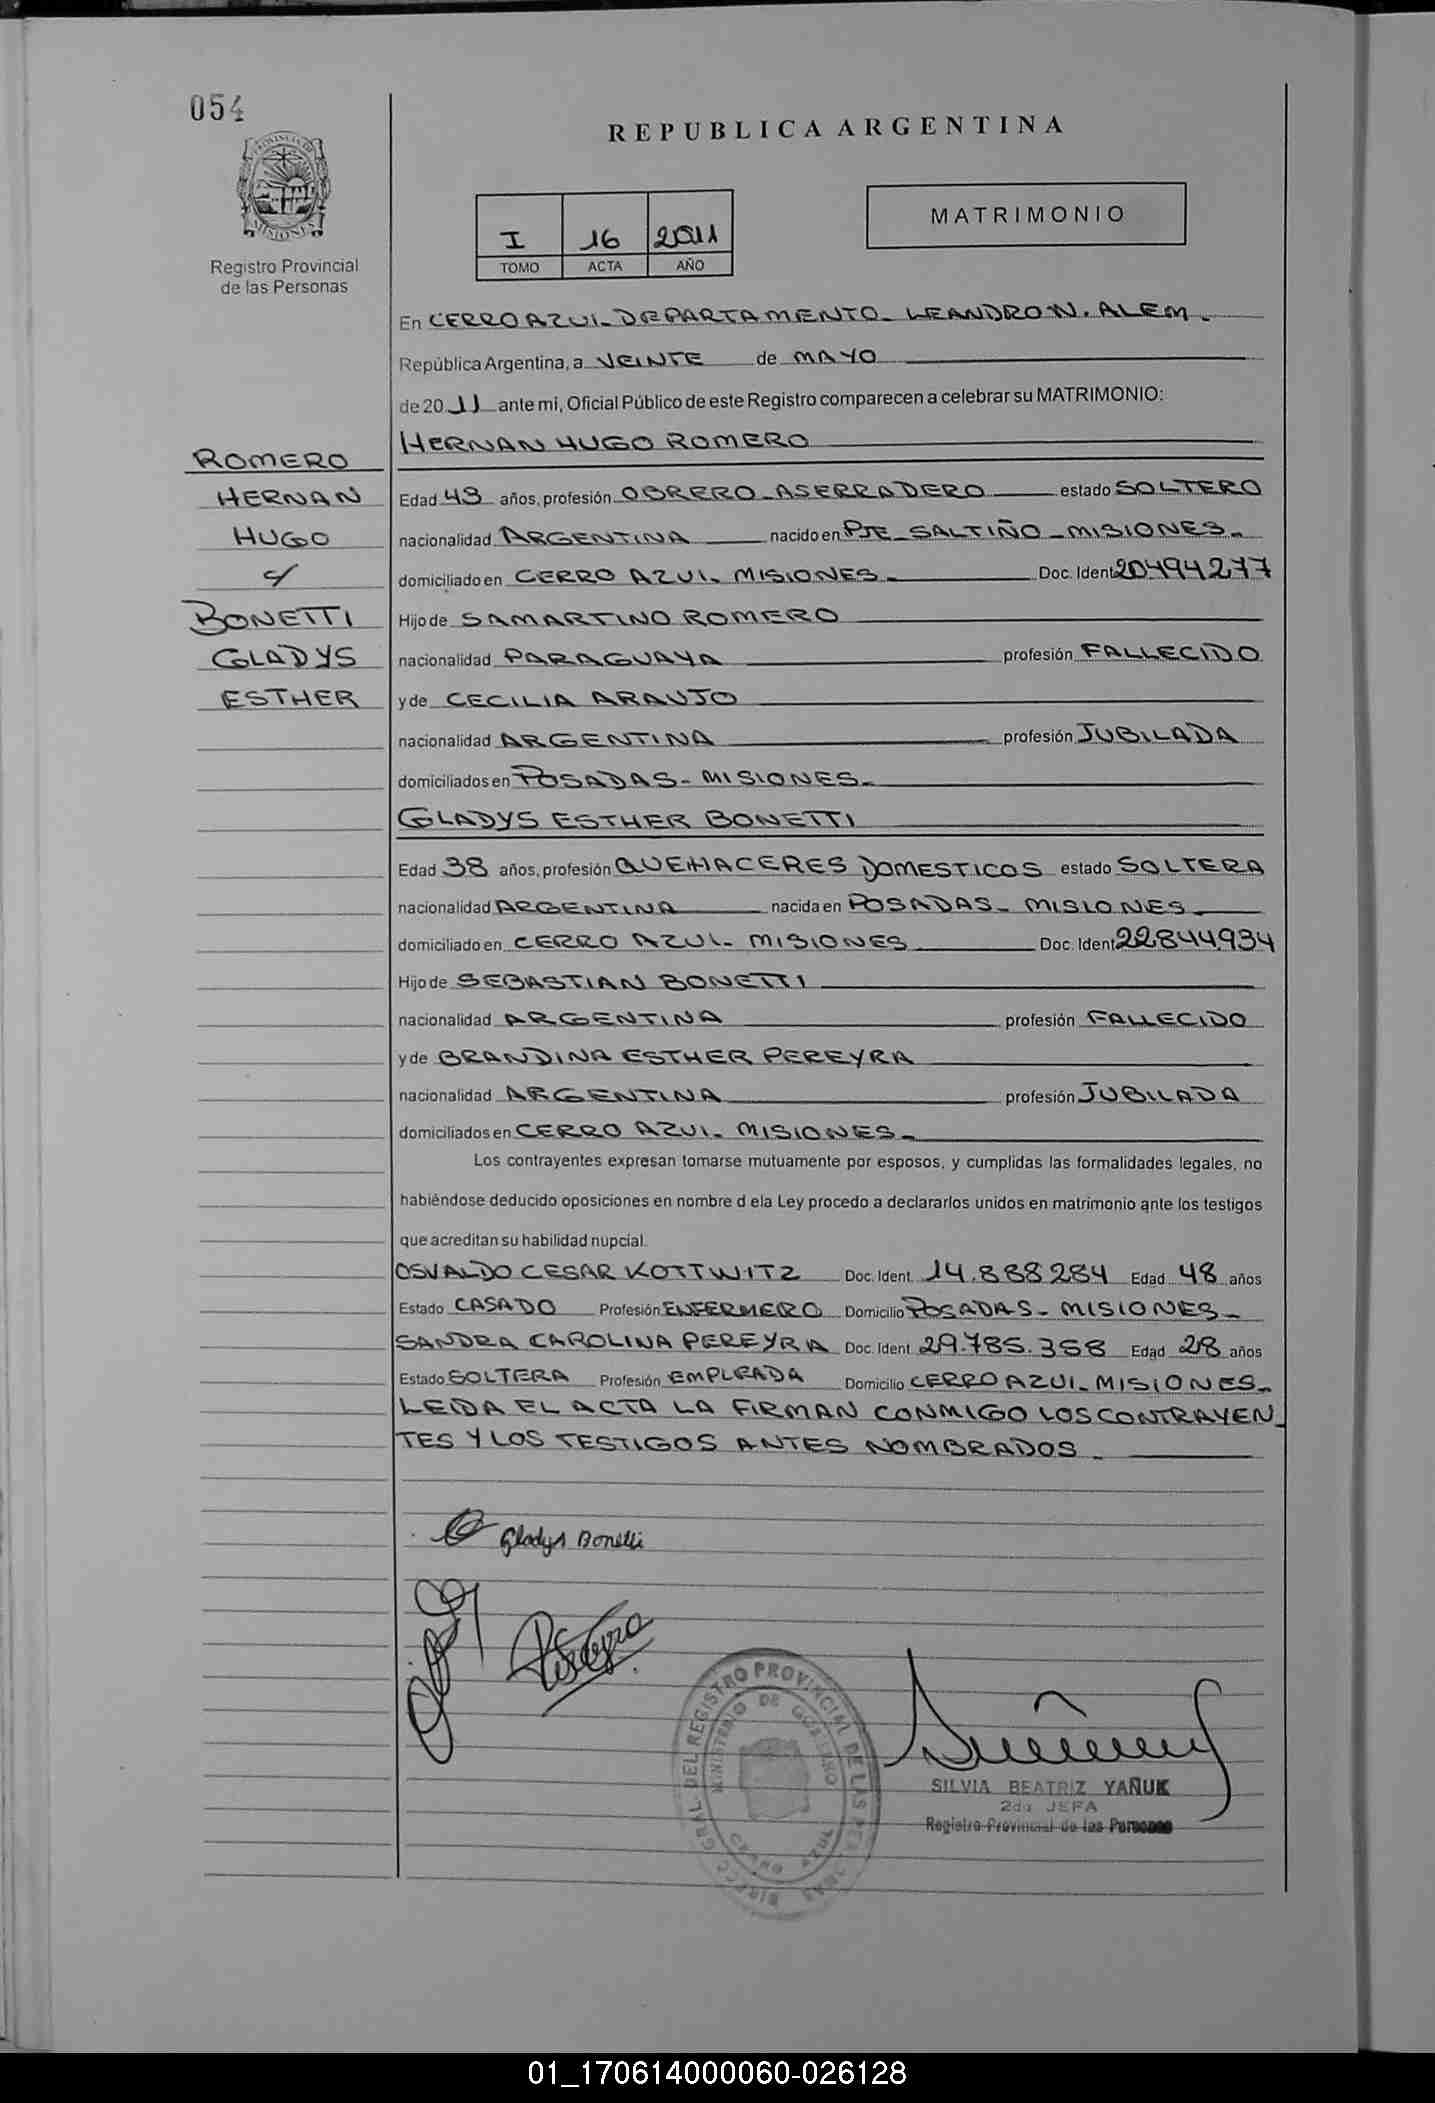 054
REPUBLICA ARGENTINA
PROVINCIA DE
MISIONES
Registro Provincial
de las Personas
I 16 2011
TOMO ACTA AÑO
MATRIMONIO
En CERRO AZUL- DEPARTAMENTO- LEANDRO N. ALEM.
República Argentina, a VEINTE de MAYO
de 20 11 ante mi, Oficial Público de este Registro comparecen a celebrar su MATRIMONIO:
ROMERO
HERNAN
HUGO
c/
BONETTI
GLADYS
ESTHER
HERNAN HUGO ROMERO
Edad 43 años, profesión OBRERO-ASERRADERO estado SOLTERO
nacionalidad ARGENTINA nacido en PJE-SALTIÑO-MISIONES-
domiciliado en CERRO AZUL-MISIONES- Doc. Ident 20494277
Hijo de SAMARTINO ROMERO
nacionalidad PARAGUAYA profesión FALLECIDO
y de CECILIA ARAUJO
nacionalidad ARGENTINA profesión JUBILADA
domiciliados en POSADAS-MISIONES-
GLADYS ESTHER BONETTI
Edad 38 años, profesión QUEHACERES DOMESTICOS estado SOLTERA
nacionalidad ARGENTINA nacida en POSADAS-MISIONES-
domiciliado en CERRO AZUL-MISIONES Doc. Ident 22844934
Hijo de SEBASTIAN BONETTI
nacionalidad ARGENTINA profesión FALLECIDO
y de BRANDINA ESTHER PEREYRA
nacionalidad ARGENTINA profesión JUBILADA
domiciliados en CERRO AZUL-MISIONES-
Los contrayentes expresan tomarse mutuamente por esposos, y cumplidas las formalidades legales, no
habiéndose deducido oposiciones en nombre d ela Ley procedo a declararlos unidos en matrimonio ante los testigos
que acreditan su habilidad nupcial.
OSVALDO CESAR KOTTWITZ Doc. Ident. 14.888284 Edad 48 años
Estado CASADO Profesión ENFERMERO Domicilio POSADAS-MISIONES-
SANDRA CAROLINA PEREYRA Doc. Ident 29.785.358 Edad 28 años
Estado SOLTERA Profesión EMPLEADA Domicilio CERRO AZUL-MISIONES-
LEIDA EL ACTA LA FIRMAN CONMIGO LOS CONTRAYEN-
TES Y LOS TESTIGOS ANTES NOMBRADOS.
Gladys Bonetti
DIRECC. GRAL. DEL REGISTRO PROVINCIAL DE LAS PERSONAS
MINISTERIO DE GOBIERNO
CERRO AZUL
SILVIA BEATRIZ YAÑUK
2da JEFA
Registro Provincial de las Personas
01_170614000060-026128